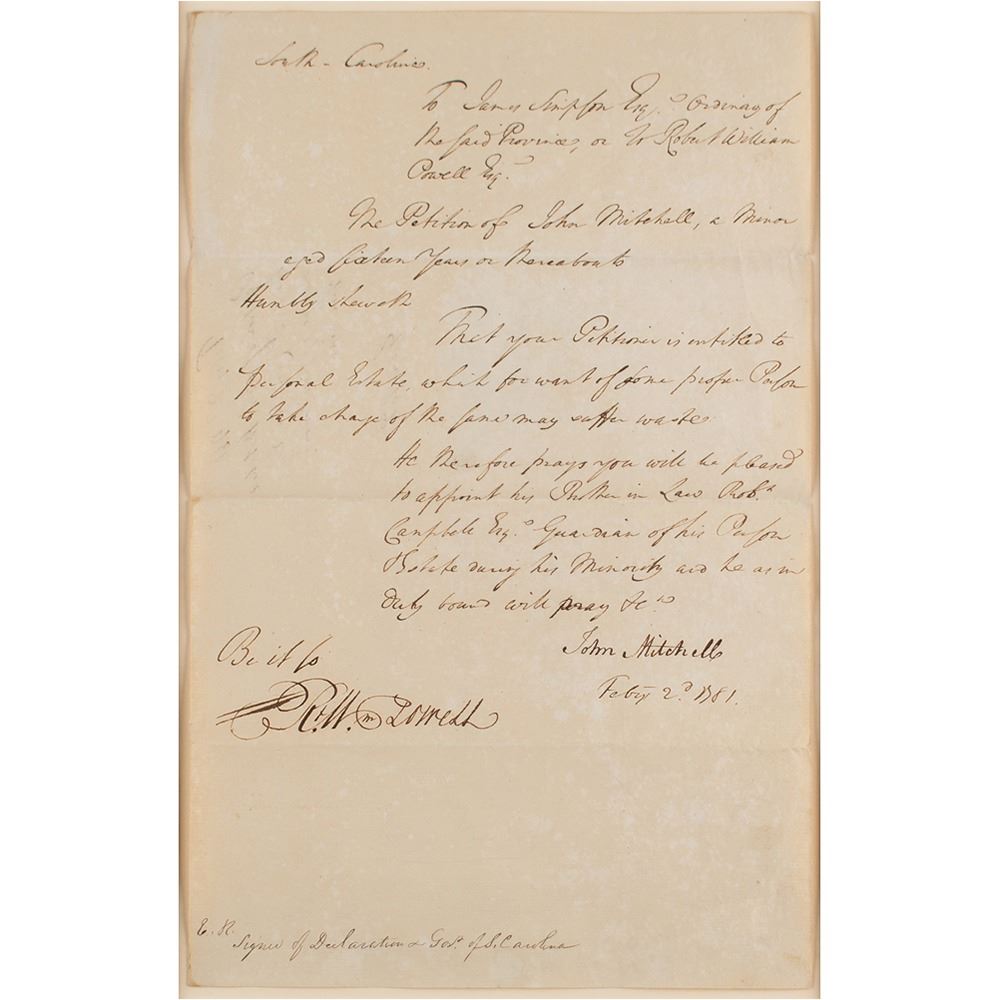 South - Carolina.
To James Simpson Esq.r Ordinary of
the said Province, or to Robert William
Powell Esq.r
The Petition of John Mitchell, a Minor
aged sixteen Years or thereabouts
Humbly Sheweth
That your Petitioner is entitled to
personal Estate, which for want of some proper Person
to take charge of the same may suffer waste
He therefore prays you will be pleased
to appoint his Brother in Law Rob.t
Campbell Esq.r Guardian of his Person
& Estate during his Minority and he as in
duty bound will pray &c.a
John Mitchell
Feby 2.d 1781.
Be it so
R. W.m Powell
E. R.
Signer of Declaration & Gov.r of S. Carolina